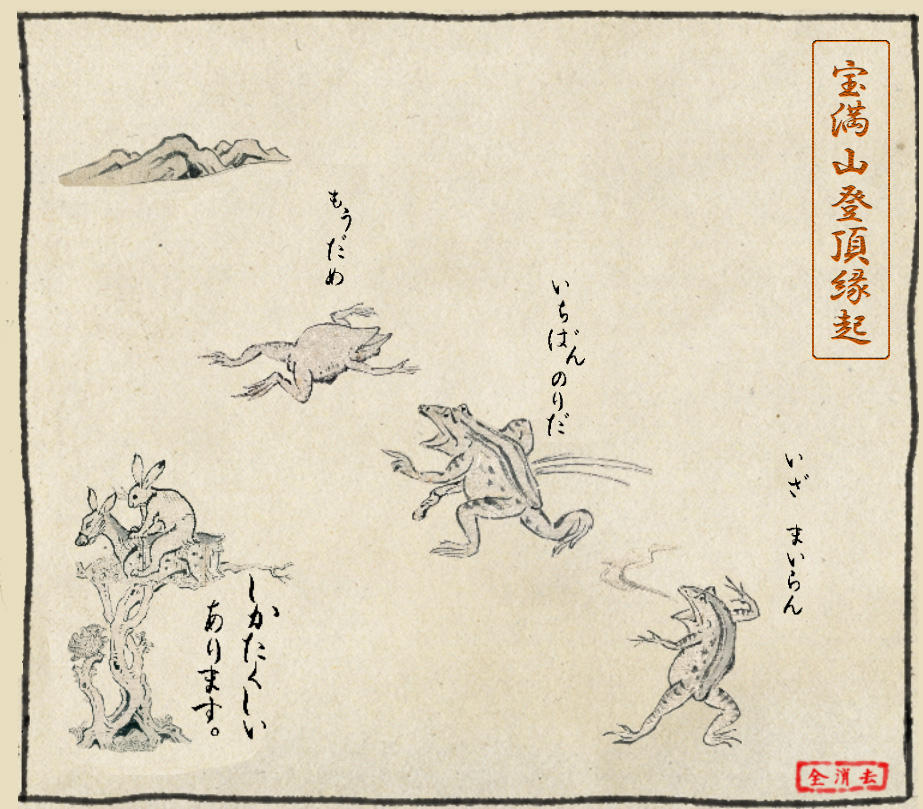 宝満山登頂縁起
いざ まいらん
いちばんのりだ
もうだめ
しかたくしい
あります。
全消去